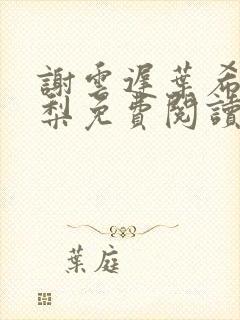 謝雲遲葉希
梨免費閱讀
葉庭